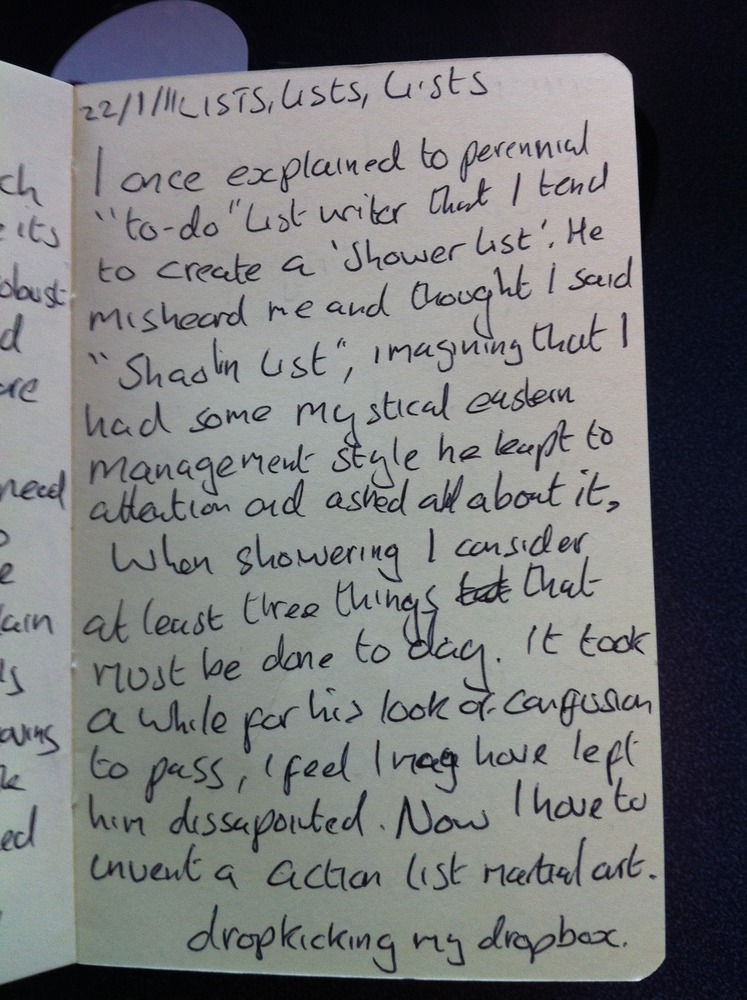 ch
its
obust
d
are
need
e
lain
ed
22/1/11 LISTS, Lists, Lists
I once explained to perennial
"to-do" List writer that I tend
to create a 'shower list'. He
misheard me and thought I said
"Shaolin List", imagining that I
had some mystical eastern
management style he leapt to
attention and asked all about it,
When showering I consider
at least three things that
must be done to day. It took
a while for his look of confusion
to pass, I feel I may have left
him dissapointed. Now I have to
invent a action list martial art.
dropkicking my dropbox.